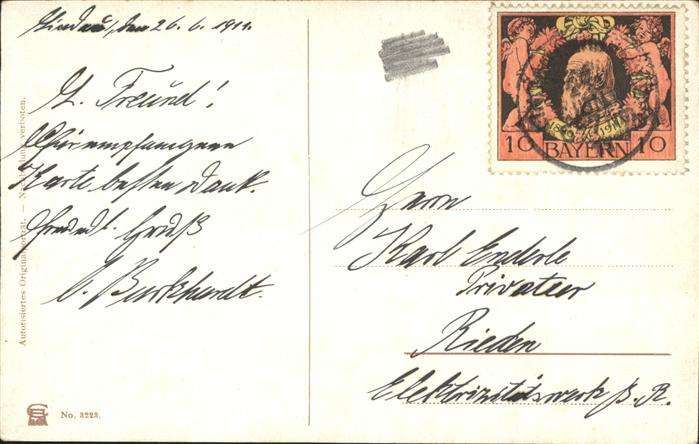 Lindau, den 26. 6. 1911.
L. Freund!
Für empfangene
Karte besten Dank.
Freundl. Gruß
C. Burkhardt.
Autorisiertes Originalporträt. — Nachbildung verboten.
No. 3223.
10 BAYERN 10
Herrn
Karl Enderle
Privatier
Rieden
Elektrizitätswerk b. K.